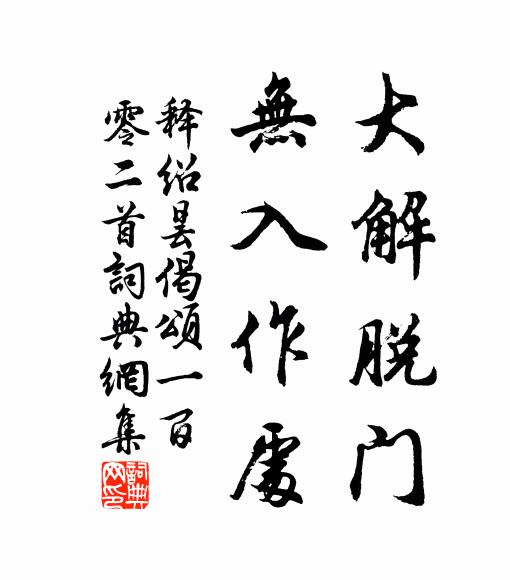 大解脱门
無入作處
释绍昙偈頌一百
零二首詞典網集
詞典
网印